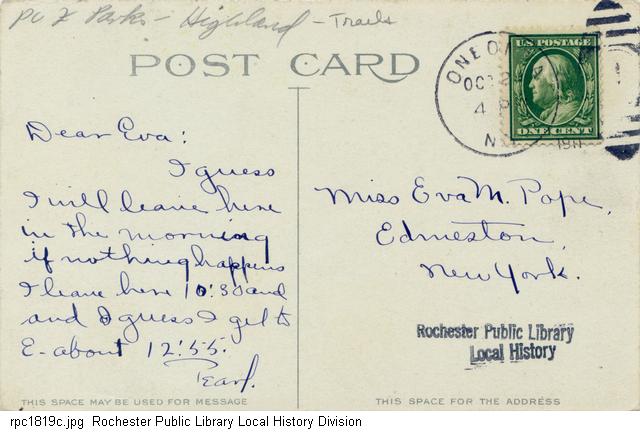 PC Z Parks - Highland - Trails
POST CARD
ONEONTA
OCT
4 P
N
191
U.S. POSTAGE
ONE CENT
Dear Eva:
I guess
I will leave here
in the morning
if nothing happens
I leave here 10:30 and
and I guess I get to
E- about 12:55.
Pearl.
Miss Eva M. Pope,
Edmeston,
New York.
Rochester Public Library
Local History
THIS SPACE MAY BE USED FOR MESSAGE
THIS SPACE IS FOR THE ADDRESS
rpc1819c.jpg Rochester Public Library Local History Division